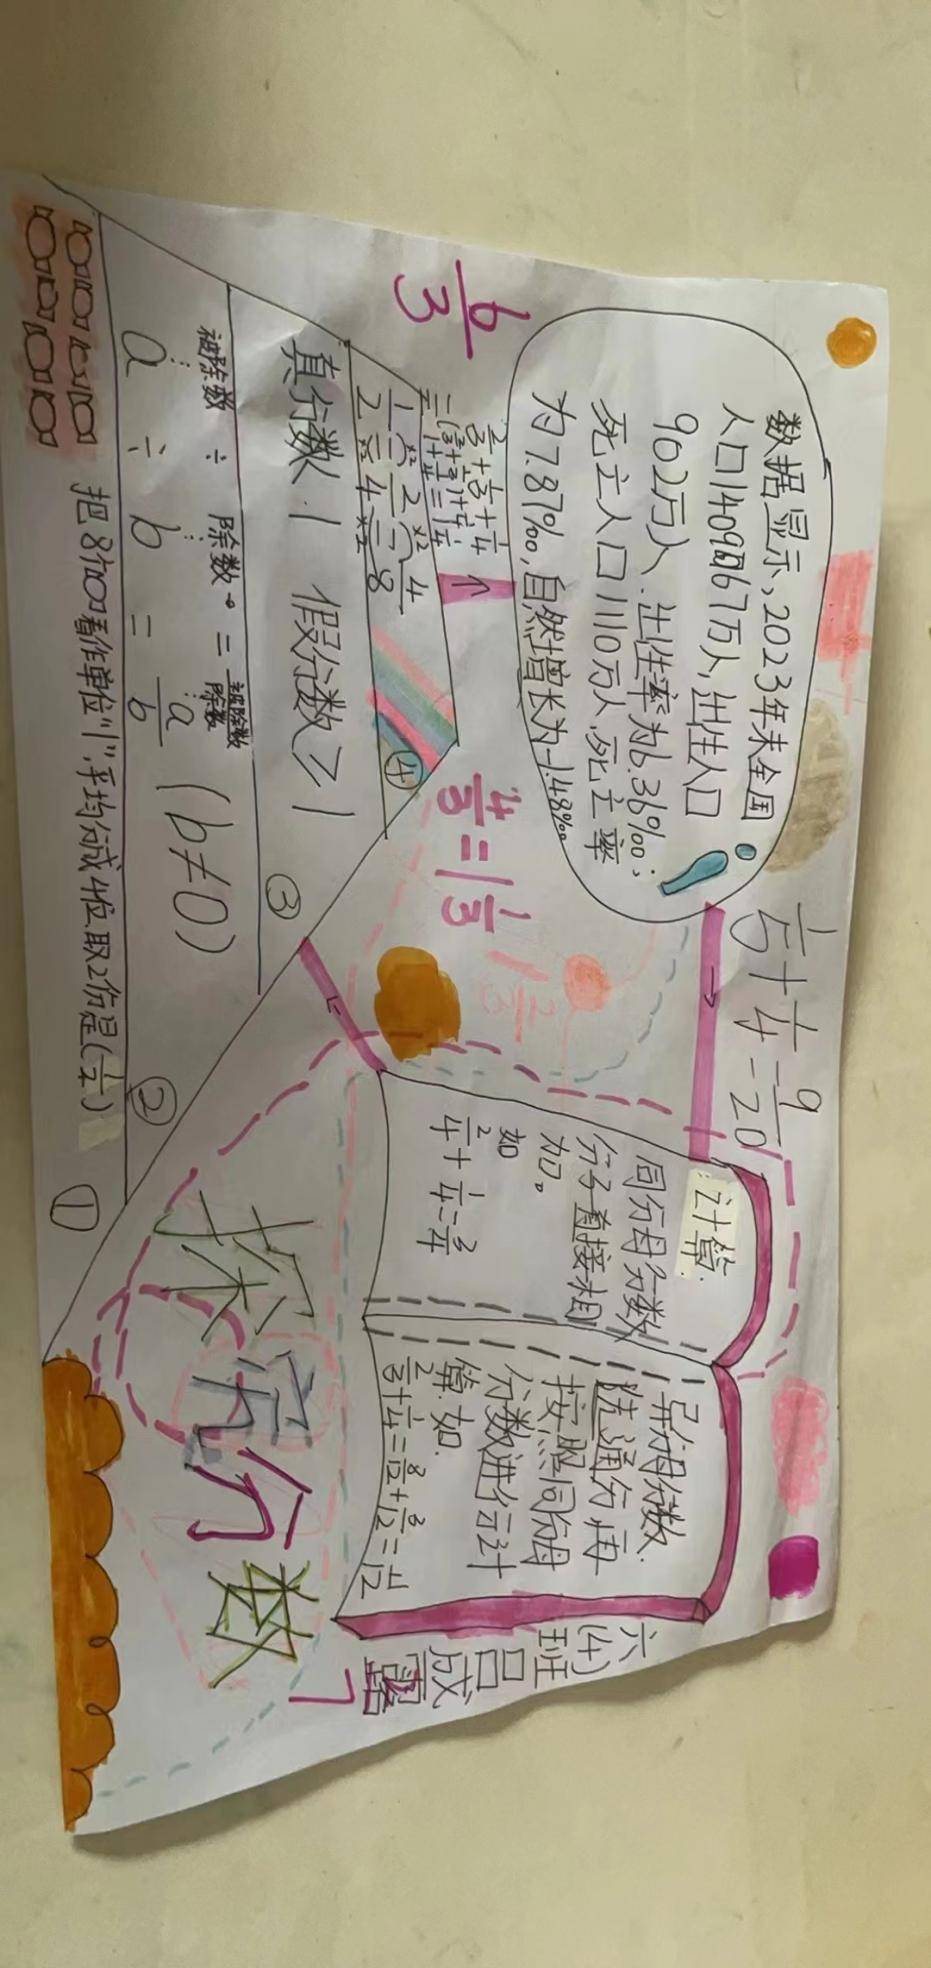 数据显示,2023年末全国
人口140967万人,出生人口
902万人.出生率为6.36‰;
死亡人口1110万人,死亡率
为7.87‰,自然增长为-1.48‰
1/5+1/4=9/20
计算:
同分母分数
分子直接相
加。
如
2/4+1/4=3/4
异分母分数.
先通分再
按照同分母
分数进行计
算.如.
2/3+1/4=8/12+3/12=11/12
六(4)班
吕成露
6/3
2/3+1/3+1/4
=(2/3+1/3)+1/4
=1+1/4=1 1/4
1/2 ×2 ×2 = 2/4 ×2 ×2 = 4/8
④
4/3=1 1/3
1 2/3
真分数<1 假分数≥1
③
被除数 ÷ 除数 = 被除数/除数
a ÷ b = a/b (b≠0)
②
平均分成4份,取2份是(1/2)
①
探究分数